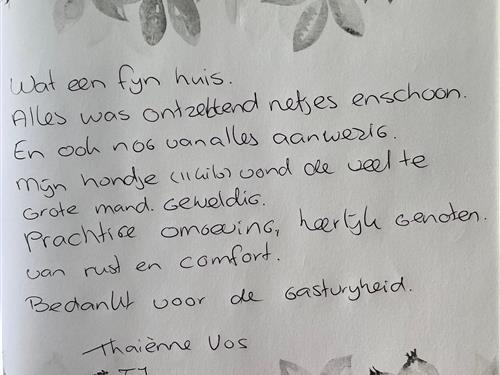 Wat een fyn huis.
Alles was ontzettend netjes enschoon.
En ook nog vanalles aanwezig.
Mijn hondje (11 kilo) vond de veel te
Grote mand. Geweldig.
Prachtige omgeving, heerlijk genoten.
van rust en comfort.
Bedankt voor de gastvryheid.
Thaiènne Vos